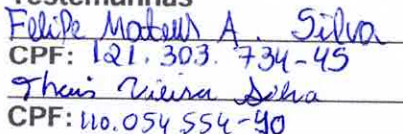 Testemunhas
Felipe Mateus A. Silva
CPF: 121.303.734-45
Thais Vieira Silva
CPF: 110.054.554-90